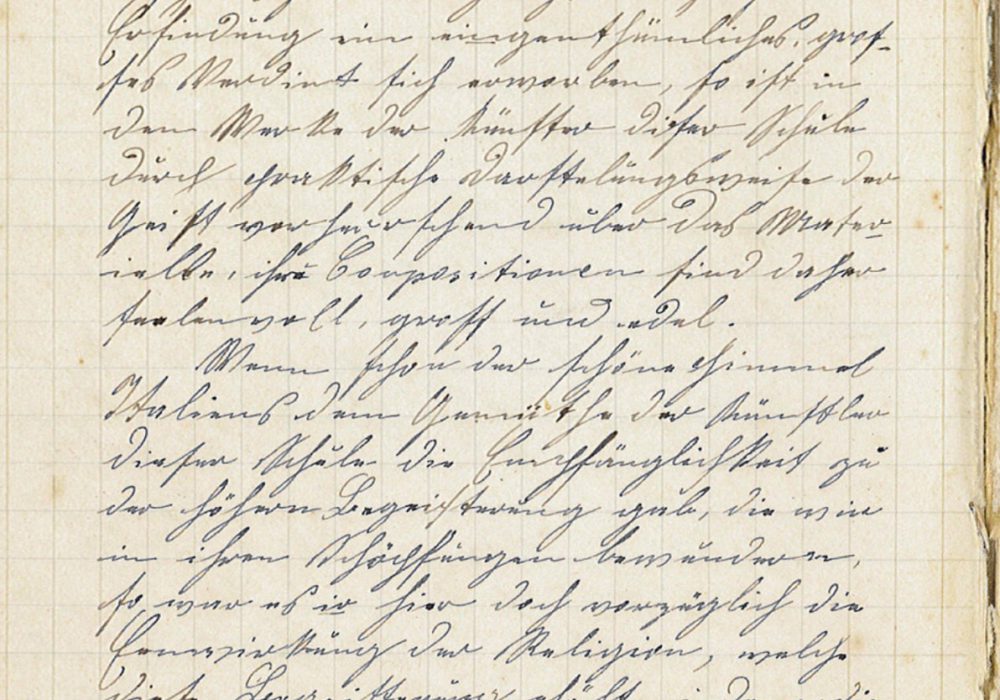 Erfindung ein eingenthümliches, gros-
ses Verdinst sich erworben, so ist in
den Werke der Künster dieser Schule
durch praktische Darstelungsweise der
Geist vorherrschend über das Mater-
ielle, ihre Compositionen sind daher
seelenvoll, gross und edel.
Wenn schon der schöne Himmel
Italiens dem Gemüthe der Künstler
dieser Schule die Empfänglichkeit zu
der höhern Begeisterung gab, die wir
in ihren Schöpfungen bewundern,
so war es hier doch vorzüglich die
Einwirkung der Religion, welche
diese Begeisterung